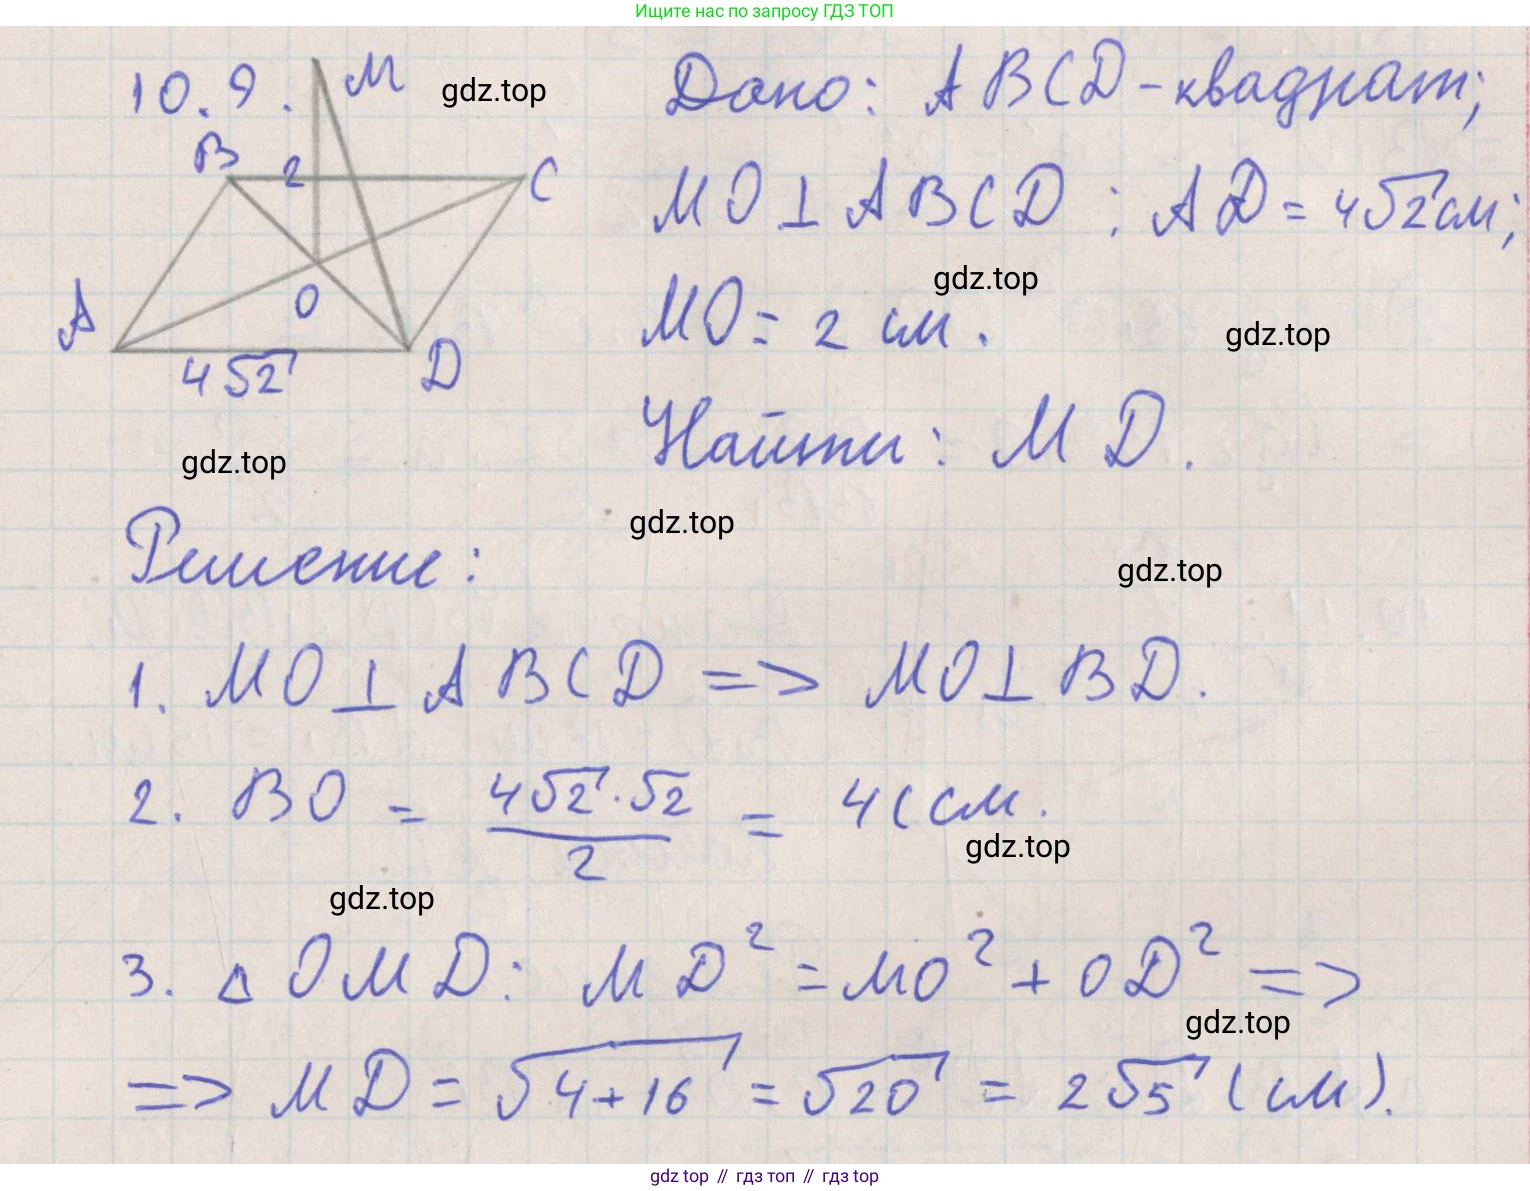 Ищите нас по запросу ГДЗ ТОП
10.9.
M
gdz.top
Дано: ABCD-квадрат;
B
2
C
MO⊥ABCD ; AD=4√2см;
gdz.top
A
O
MO= 2 см.
gdz.top
4√2
D
Найти: MD.
gdz.top
gdz.top
Решение:
gdz.top
1. MO⊥ABCD => MO⊥BD.
2. BO = 4√2·√2/2 = 4(см.
gdz.top
gdz.top
3. △OMD: MD²=MO²+OD² =>
gdz.top
=> MD=√4+16=√20 = 2√5 (см).
gdz.top // гдз топ // гдз top